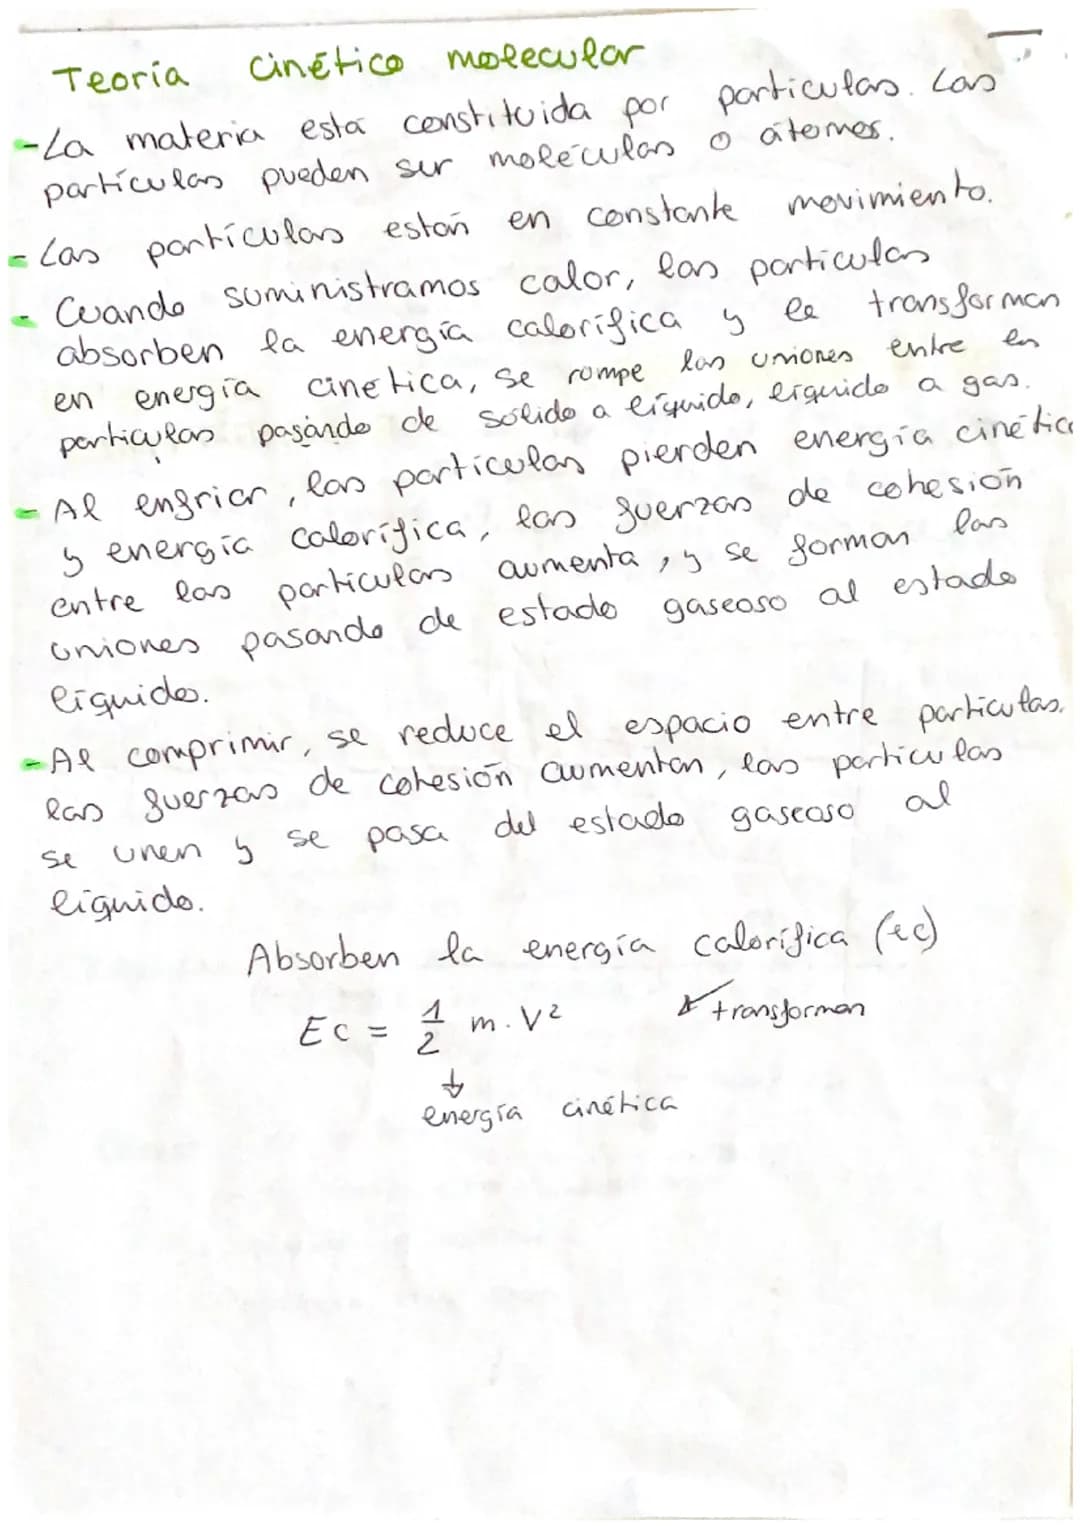 Teoría cinético molecular
-La materia está constituida por partículas. Las
partículas pueden ser moléculas o átomos.
-Las partículas están en constante movimiento.
- Cuando suministramos calor, las partículas
absorben la energía calorífica y la transforman
en energía cinética, se rompe las uniones entre las
partículas pasando de sólido a líquido, líquido a gas.
-Al enfriar, las partículas pierden energía cinética
y energía calorífica, las fuerzas de cohesión
entre las partículas aumenta, y se forman las
uniones pasando de estado gaseoso al estado
líquido.
-Al comprimir, se reduce el espacio entre partículas.
las fuerzas de cohesión aumentan, las partículas
se unen y se pasa del estado gaseoso al
líquido.
Absorben la energía calorífica (ec)
Ec = 1/2 m. V² transforman
↓
energía cinética